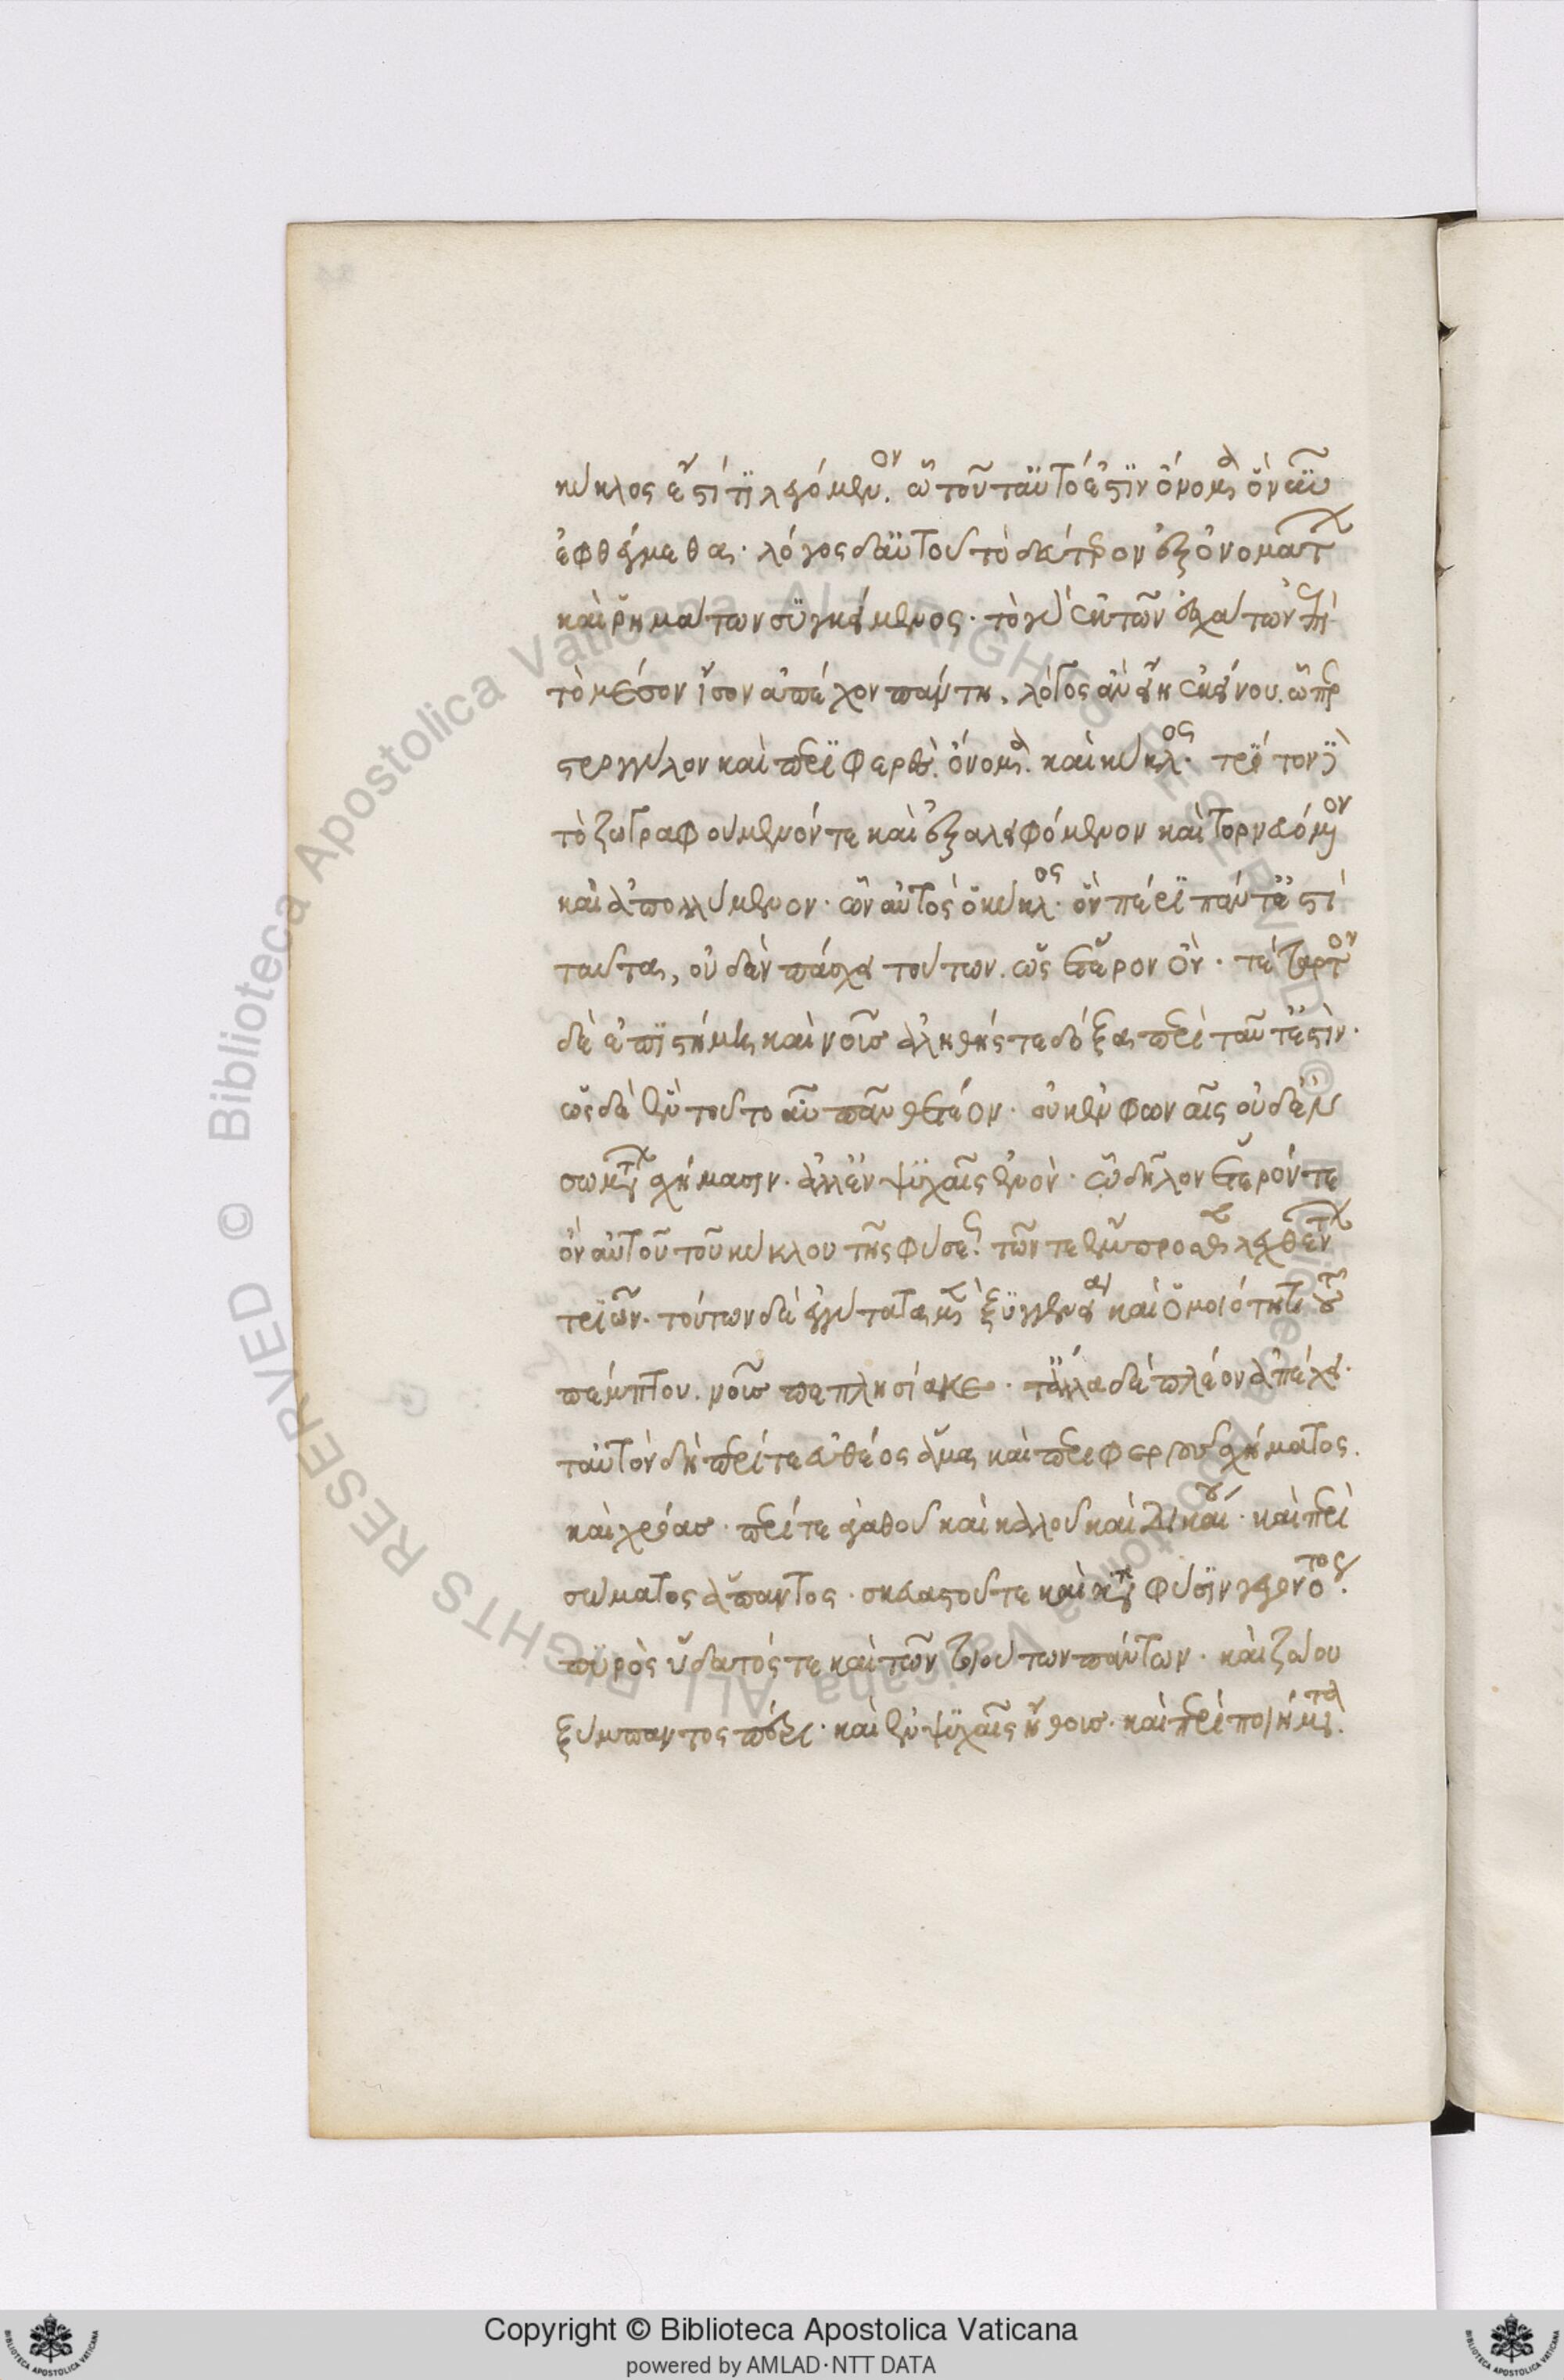 κύκλος ἐστί τι λεγόμενον. ᾧ τοῦτ' αὐτό ἐστιν ὄνομα ὃ νῦν
ἐφθέγμεθα· λόγος δ' αὐτοῦ τὸ δεύτερον ἐξ ὀνομάτων
καὶ ῥημάτων συγκείμενος· τὸ γὰρ ἐκ τῶν ἐσχάτων ἐπὶ
τὸ μέσον ἴσον ἀπέχον πάντη, λόγος ἂν εἴη ἐκείνου. ᾧπερ
στρογγύλον καὶ περιφερὲς ὄνομα. καὶ κύκλος· τρίτον δὲ
τὸ ζωγραφούμενόν τε καὶ ἐξαλειφόμενον καὶ τορνευόμενον
καὶ ἀπολλύμενον· ὧν αὐτὸς ὁ κύκλος· ὃν πέρι πάντ' ἐστὶ
ταῦτα, οὐδὲν πάσχει τούτων. ὡς ἕτερον ὂν· τέταρτον
δὲ ἐπιστήμη καὶ νοῦς ἀληθής τε δόξα περὶ ταῦτ' ἐστίν·
ὡς δὲ ἓν τοῦτο αὖ πᾶν θετέον· οὐκ ἐν φωναῖς οὐδ' ἐν
σωμάτων σχήμασιν. ἀλλ' ἐν ψυχαῖς ἐνόν· ᾧ δῆλον ἕτερόν τε
ὂν αὐτοῦ τοῦ κύκλου τῆς φύσεως. τῶν τε ἔμπροσθεν λεχθέντων
τριῶν. τούτων δὲ ἐγγύτατα μὲν ξυγγενείᾳ καὶ ὁμοιότητι τοῦ
πέμπτου. νοῦς πεπλησίακε· τἄλλα δὲ πλέον ἀπέχει·
ταὐτὸν δὴ περί τε εὐθέος ἅμα καὶ περιφεροῦς σχήματος.
καὶ χρόας· περί τε ἀγαθοῦ καὶ καλοῦ καὶ δικαίου· καὶ περὶ
σώματος ἅπαντος· σκευαστοῦ τε καὶ κατὰ φύσιν γεγονότος.
πυρὸς ὕδατός τε καὶ τῶν τοιούτων πάντων· καὶ ζώου
ξύμπαντος πέρι· καὶ ἐν ψυχαῖς ἤθους· καὶ περὶ ποιήματα.